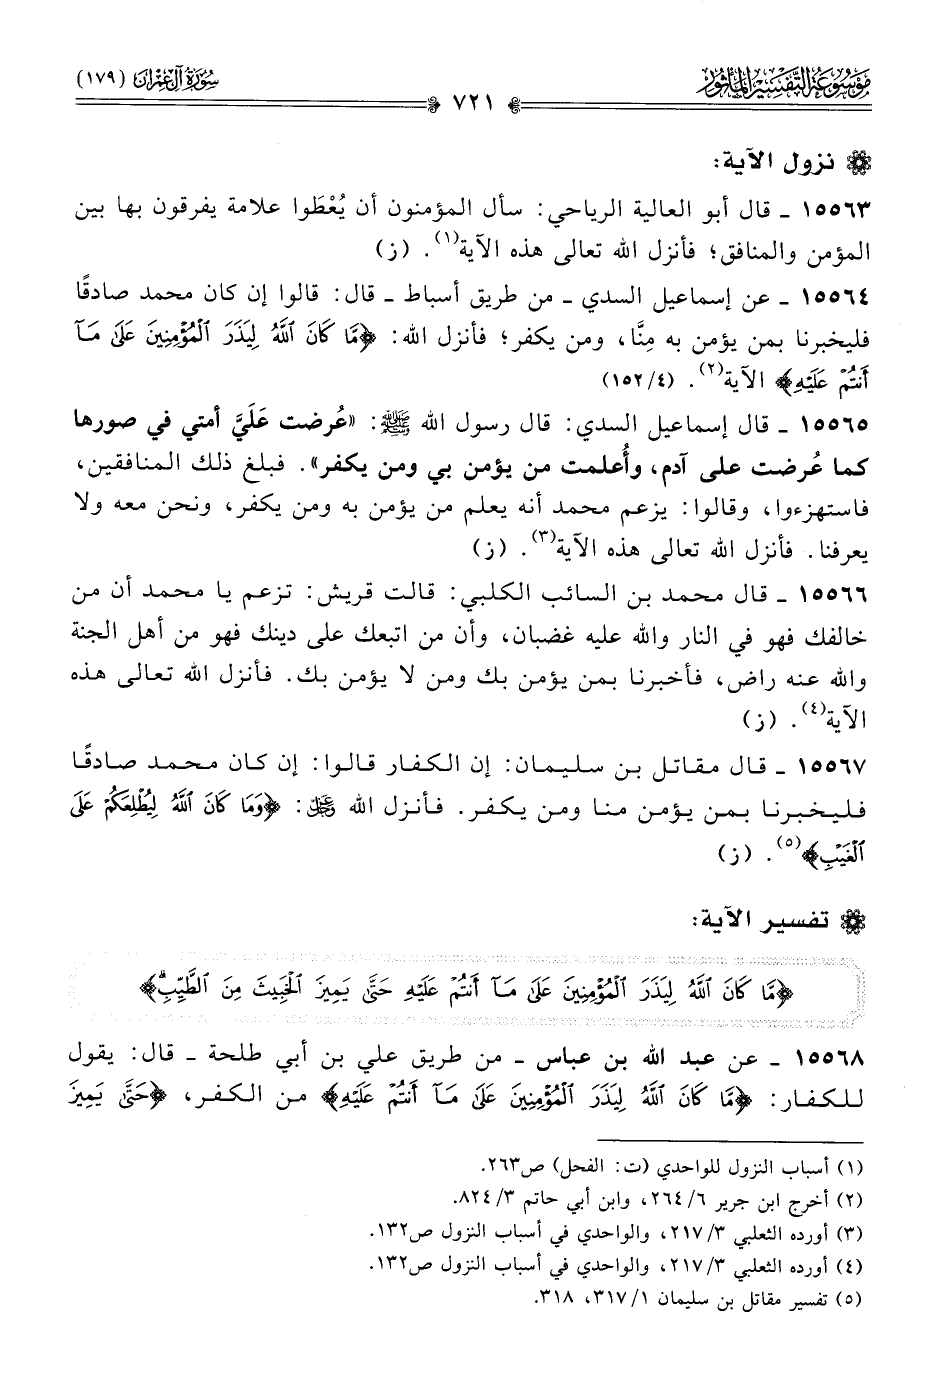 موسوعة التفسير المأثور
سورة آل عمران (١٧٩)
٧٢١
نزول الآية:
١٥٥٦٣ ـ قال أبو العالية الرياحي: سأل المؤمنون أن يُعْطَوا علامة يفرقون بها بين
المؤمن والمنافق؛ فأنزل الله تعالى هذه الآية(١). (ز)
١٥٥٦٤ ـ عن إسماعيل السدي ـ من طريق أسباط ـ قال: قالوا إن كان محمد صادقًا
فليخبرنا بمن يؤمن به مِنَّا، ومن يكفر؛ فأنزل الله: ﴿مَّا كَانَ ٱللَّهُ لِيَذَرَ ٱلْمُؤْمِنِينَ عَلَىٰ مَآ
أَنتُمْ عَلَيْهِ﴾ الآية(٢). (١٥٢/٤)
١٥٥٦٥ ـ قال إسماعيل السدي: قال رسول الله ﷺ: «عُرضت عَلَيَّ أمتي في صورها
كما عُرضت على آدم، وأُعلمت من يؤمن بي ومن يكفر». فبلغ ذلك المنافقين،
فاستهزءوا، وقالوا: يزعم محمد أنه يعلم من يؤمن به ومن يكفر، ونحن معه ولا
يعرفنا. فأنزل الله تعالى هذه الآية(٣). (ز)
١٥٥٦٦ ـ قال محمد بن السائب الكلبي: قالت قريش: تزعم يا محمد أن من
خالفك فهو في النار والله عليه غضبان، وأن من اتبعك على دينك فهو من أهل الجنة
والله عنه راض، فأخبرنا بمن يؤمن بك ومن لا يؤمن بك. فأنزل الله تعالى هذه
الآية(٤). (ز)
١٥٥٦٧ ـ قال مقاتل بن سليمان: إن الكفار قالوا: إن كان محمد صادقًا
فليخبرنا بمن يؤمن منا ومن يكفر. فأنزل الله ﷿: ﴿وَمَا كَانَ ٱللَّهُ لِيُطْلِعَكُمْ عَلَى
ٱلْغَيْبِ﴾(٥). (ز)
تفسير الآية:
﴿مَّا كَانَ ٱللَّهُ لِيَذَرَ ٱلْمُؤْمِنِينَ عَلَىٰ مَآ أَنتُمْ عَلَيْهِ حَتَّىٰ يَمِيزَ ٱلْخَبِيثَ مِنَ ٱلطَّيِّبِۗ﴾
١٥٥٦٨ ـ عن عبد الله بن عباس ـ من طريق علي بن أبي طلحة ـ قال: يقول
للكفار: ﴿مَّا كَانَ ٱللَّهُ لِيَذَرَ ٱلْمُؤْمِنِينَ عَلَىٰ مَآ أَنتُمْ عَلَيْهِ﴾ من الكفر، ﴿حَتَّىٰ يَمِيزَ
(١) أسباب النزول للواحدي (ت: الفحل) ص٢٦٣.
(٢) أخرج ابن جرير ٦/ ٢٦٤، وابن أبي حاتم ٣/ ٨٢٤.
(٣) أورده الثعلبي ٣/ ٢١٧، والواحدي في أسباب النزول ص١٣٢.
(٤) أورده الثعلبي ٣/ ٢١٧، والواحدي في أسباب النزول ص١٣٢.
(٥) تفسير مقاتل بن سليمان ١/ ٣١٧، ٣١٨.